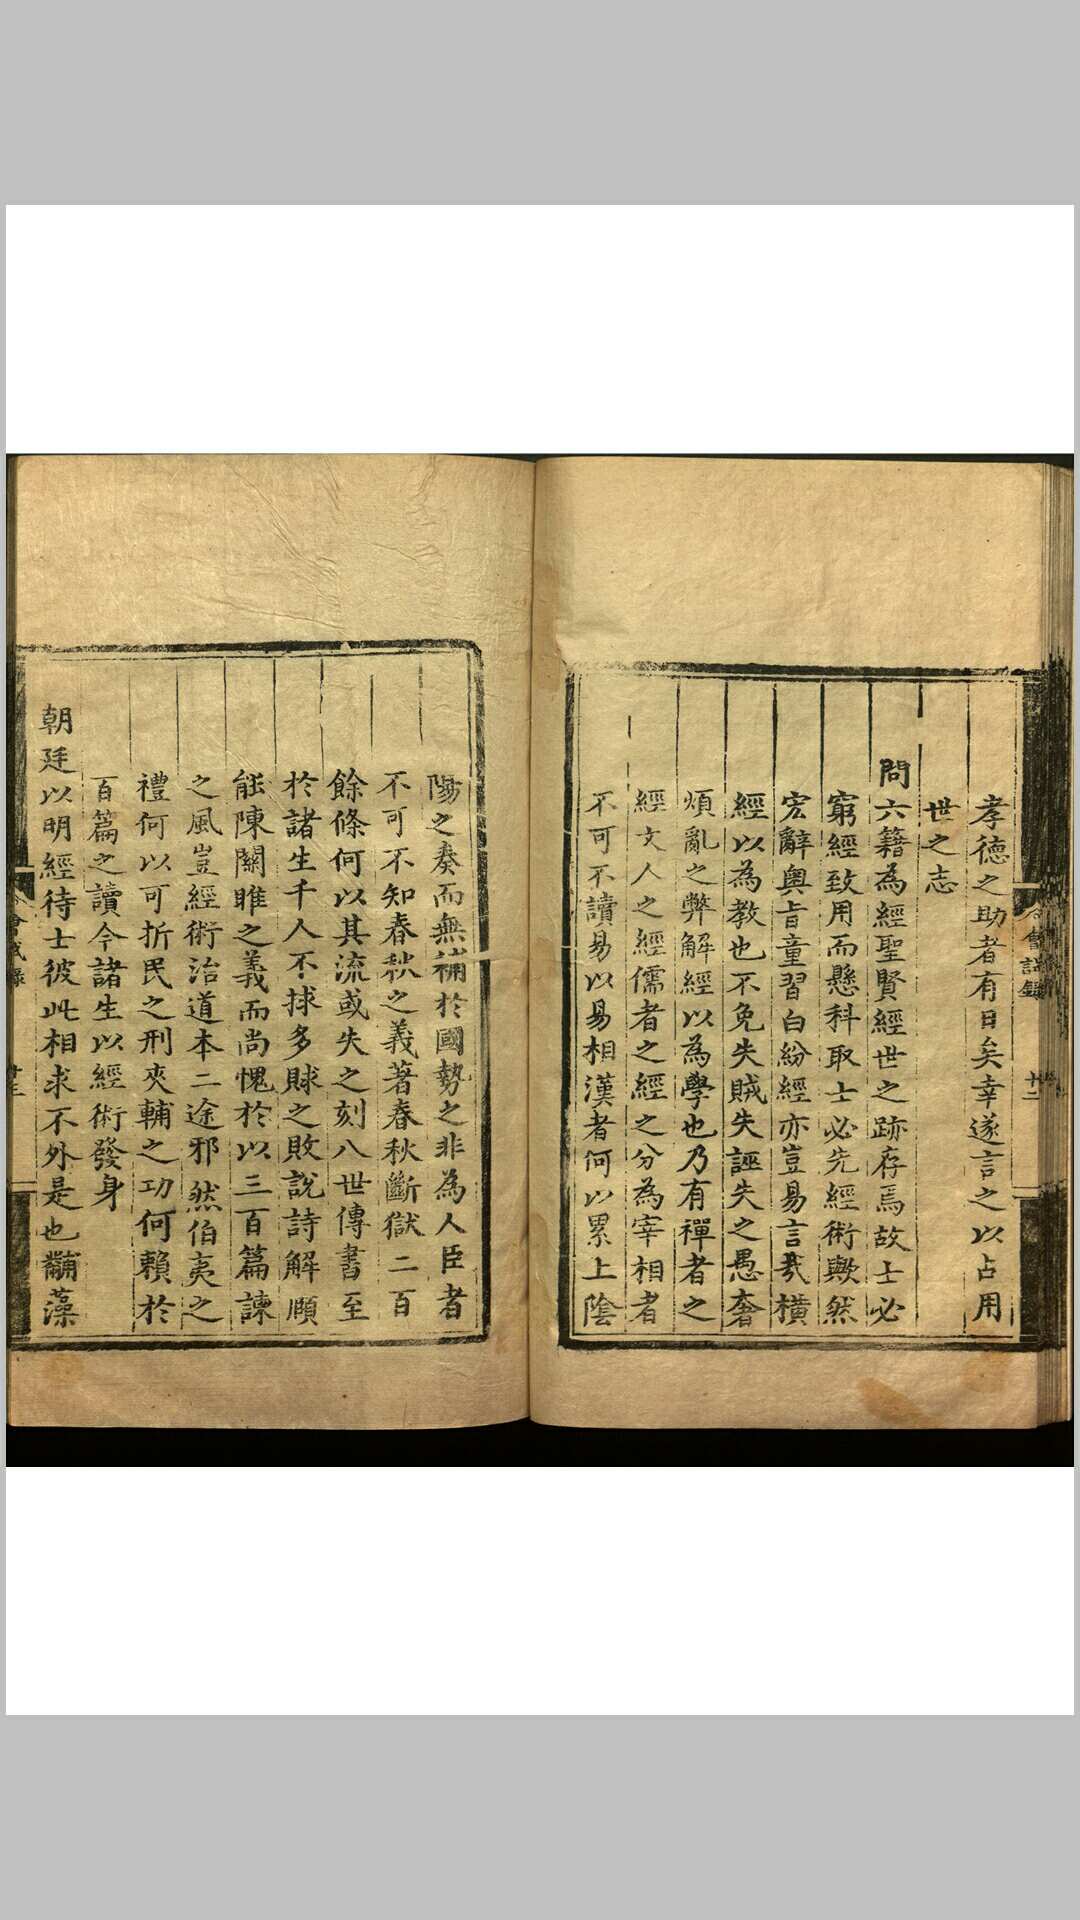 孝德之助者有日矣幸遂言之以占用
世之志
問六籍為經聖賢經世之跡存焉故士必
窮經致用而懸科取士必先經術歟然
宏辭奧旨童習白紛經亦豈易言哉橫
經以為教也不免失賊失誣失之愚奢
煩亂之弊解經以為學也乃有禪者之
經文人之經儒者之經之分為宰相者
不可不讀易以易相漢者何以累上陰
陽之奏而無補於國勢之非為人臣者
不可不知春秋之義著春秋斷獄二百
餘條何以其流或失之刻八世傳書至
於諸生千人不捄多賕之敗說詩解頤
能陳關雎之義而尚愧於以三百篇諫
之風豈經術治道本二途邪然伯夷之
禮何以可折民之刑夾輔之功何賴於
百篇之讀今諸生以經術發身
朝廷以明經待士彼此相求不外是也黼藻
會試錄
十二
會試錄
十三